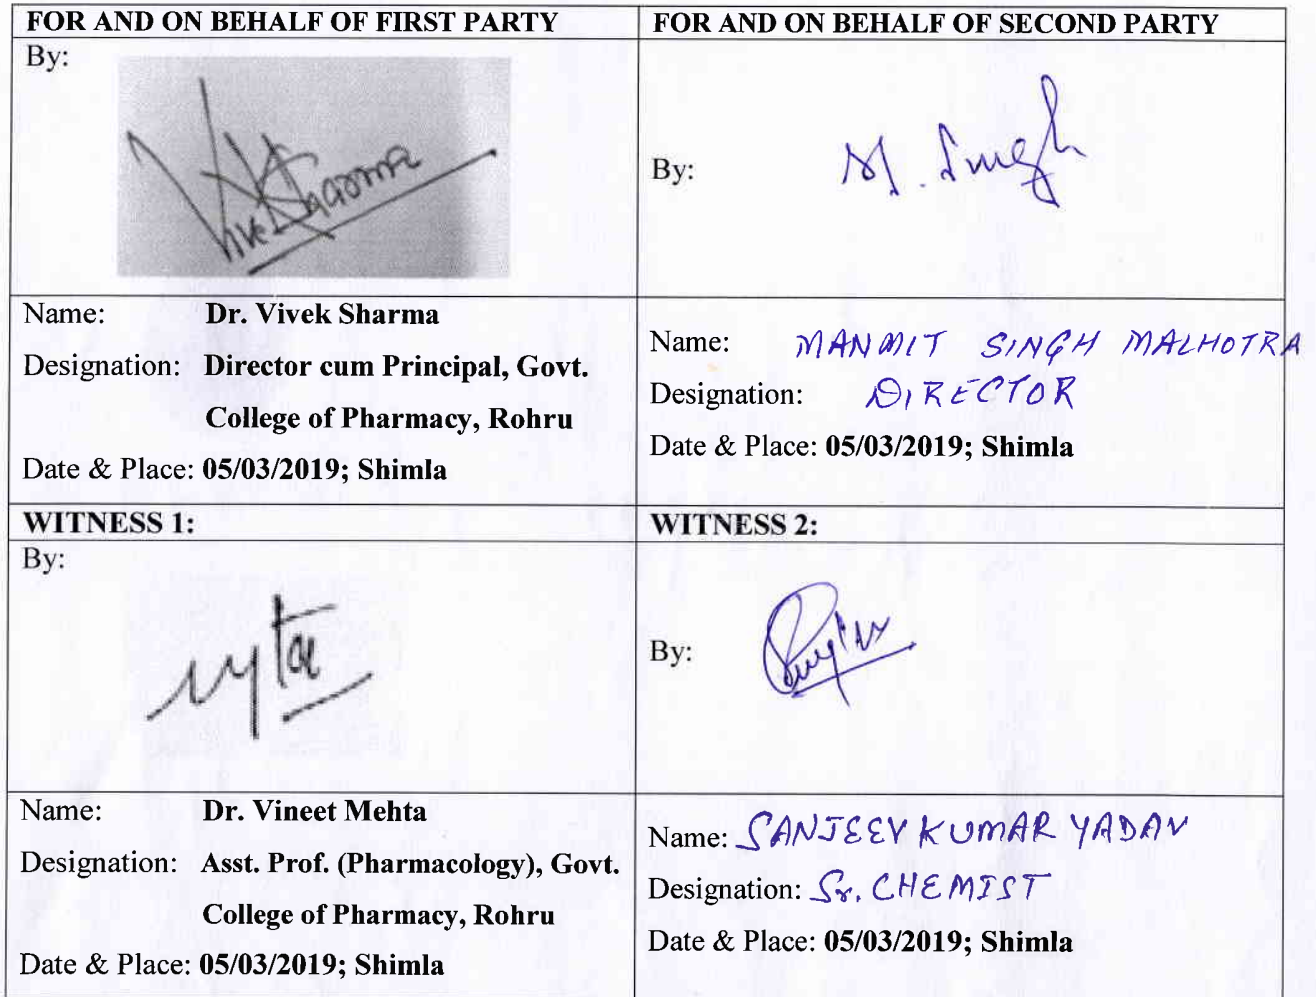 FOR AND ON BEHALF OF FIRST PARTY
FOR AND ON BEHALF OF SECOND PARTY
By:
Vivek Sharma
By:
M. Singh
Name: Dr. Vivek Sharma
Designation: Director cum Principal, Govt.
College of Pharmacy, Rohru
Date & Place: 05/03/2019; Shimla
Name: MANMIT SINGH MALHOTRA
Designation: DIRECTOR
Date & Place: 05/03/2019; Shimla
WITNESS 1:
WITNESS 2:
By:
By:
Name: Dr. Vineet Mehta
Designation: Asst. Prof. (Pharmacology), Govt.
College of Pharmacy, Rohru
Date & Place: 05/03/2019; Shimla
Name: SANJEEV KUMAR YADAV
Designation: Sr. CHEMIST
Date & Place: 05/03/2019; Shimla